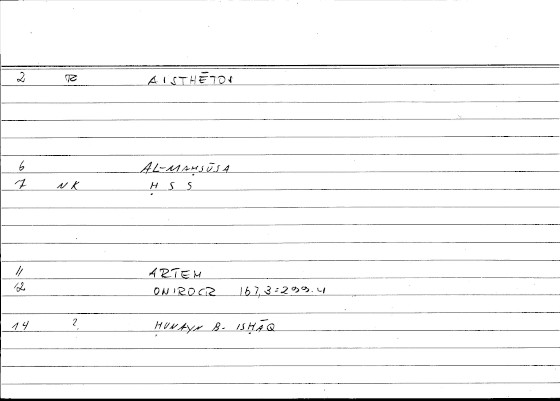 2 R AISTHĒTOI
6 AL-MAḤSŪSA
7 NK Ḥ S S
11 ARTEM
12 ONIROCR 167,3=299.4
14 ? ḤUNAYN B- ISḤĀQ